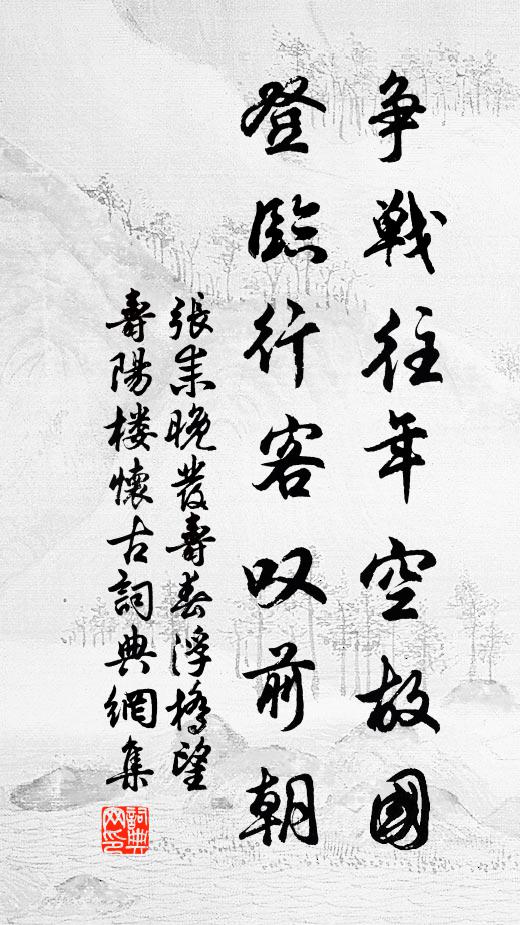 争戰往年空故國
登臨行客叹前朝
張耒晚發壽春浮橋望
壽陽楼懷古詞典網集
詞典网印